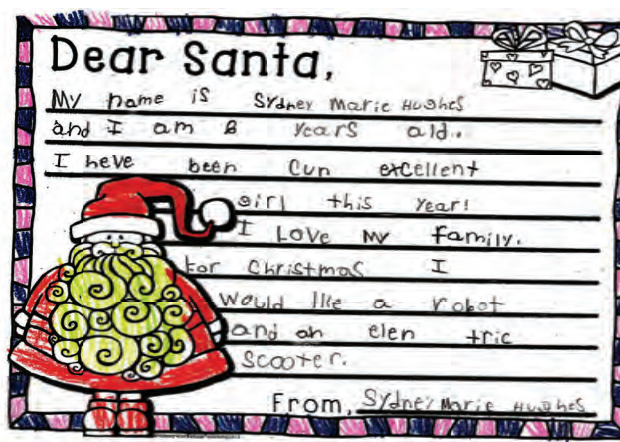 Dear Santa,
My name is Sydney Marie Hughes
and I am 8 years ald.
I heve been Cun excellent
girl this year!
I Love My family.
For Christmas I
would like a robot
and an elen tric
Scooter.
From, Sydney Marie Hughes